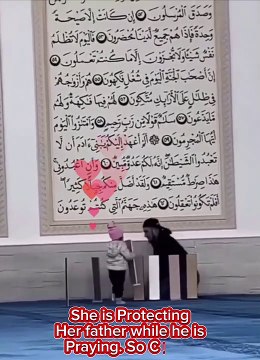 وَصَدَقَ الْمُرْسَلُونَ ۝ إِن كَانَتْ إِلَّا صَيْحَةً
وَٰحِدَةً فَإِذَا هُمْ جَمِيعٌ لَّدَيْنَا مُحْضَرُونَ ۝ فَالْيَوْمَ لَا تُظْلَمُ
نَفْسٌ شَيْئًا وَلَا تُجْزَوْنَ إِلَّا مَا كُنتُمْ تَعْمَلُونَ ۝
إِنَّ أَصْحَٰبَ الْجَنَّةِ الْيَوْمَ فِي شُغُلٍ فَٰكِهُونَ ۝ هُمْ وَأَزْوَٰجُهُمْ
فِي ظِلَٰلٍ عَلَى الْأَرَآئِكِ مُتَّكِئُونَ ۝ لَهُمْ فِيهَا فَٰكِهَةٌ وَلَهُم
مَّا يَدَّعُونَ ۝ سَلَٰمٌ قَوْلًا مِّن رَّبٍّ رَّحِيمٍ ۝ وَامْتَٰزُوا الْيَوْمَ
أَيُّهَا الْمُجْرِمُونَ ۝ أَلَمْ أَعْهَدْ إِلَيْكُمْ يَٰبَنِي ءَادَمَ أَن لَّا
تَعْبُدُوا الشَّيْطَٰنَ إِنَّهُ لَكُمْ عَدُوٌّ مُّبِينٌ ۝ وَأَنِ اعْبُدُونِي
هَٰذَا صِرَٰطٌ مُّسْتَقِيمٌ ۝ وَلَقَدْ أَضَلَّ مِنكُمْ جِبِلًّا كَثِيرًا
أَفَلَمْ تَكُونُوا تَعْقِلُونَ ۝ هَٰذِهِ جَهَنَّمُ الَّتِي كُنتُمْ تُوعَدُونَ
She is Protecting
Her father while he is
Praying. So C